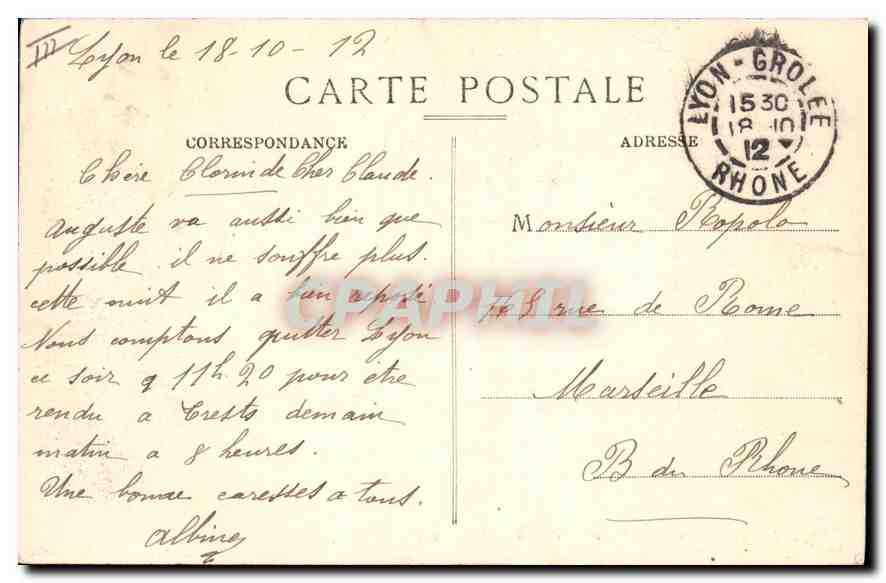 III
Lyon le 18-10-12
CARTE POSTALE
CORRESPONDANCE
Chère Clorinde Cher Claude.
Auguste va aussi bien que
possible. il ne souffre plus.
cette nuit il a bien reposé
Nous comptons quitter Lyon
ce soir a 11h.20 pour être
rendu a Trests demain
matin a 8 heures.
Une bonne caresses a tous.
Albine
ADRESSE
LYON - GROLEE
15 30
18 -10
12
RHONE
Monsieur Ropolo
rue de Rome
Marseille
B du Rhone
CPAPHIL